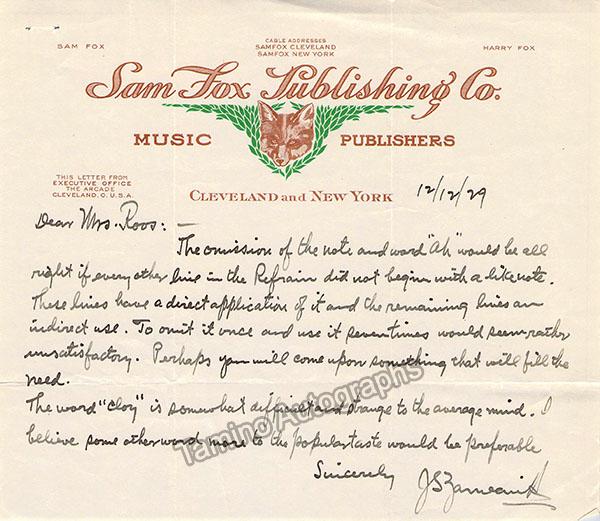 SAM FOX
CABLE ADDRESSES
SAMFOX CLEVELAND
SAMFOX NEW YORK
HARRY FOX
Sam Fox Publishing Co.
MUSIC PUBLISHERS
THIS LETTER FROM
EXECUTIVE OFFICE
THE ARCADE
CLEVELAND, O. U.S.A.
CLEVELAND and NEW YORK
12/12/29
Dear Mrs. Roos: —
The omission of the note and word "Ah" would be all
right if every other line in the Refrain did not begin with a like note.
These lines have a direct application of it and the remaining lines an
indirect use. To omit it once and use it seven times would seem rather
unsatisfactory. Perhaps you will come upon something that will fill the
need.
The word "cloy" is somewhat difficult and strange to the average mind. I
believe some other word more to the popular taste would be preferable
Sincerely
J S Zamecnik
Tamino Autographs